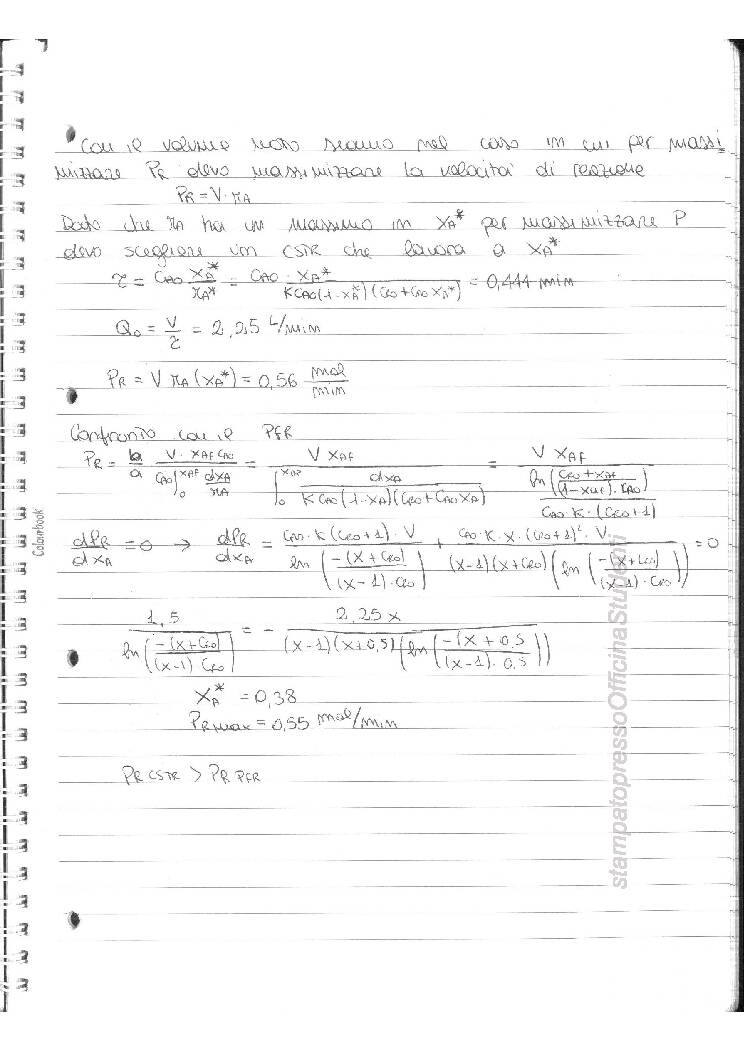 Con il volume noto siamo nel caso in cui per massi
mizzare PR devo massimizzare la velocità di reazione
PR = V · rA
Dato che rA ha un massimo in XA* per massimizzare P
devo scegliere un CSTR che lavora a XA*
τ = CA0 XA*/rA* = CA0 · XA*/(K CA0 (1 - XA*)(CR0 + CA0 XA*)) = 0,444 min
Q0 = V/τ = 2,25 L/min
PR = V rA (XA*) = 0,56 mol/min
Confronto con il PFR
PR = b/a · (V · XAF CA0)/(CA0 ∫0^XAF dXA/rA) = V XAF/(∫0^XAF dXA/(K CA0 (1 - XA)(CR0 + CA0 XA))) = V XAF/(ln((CR0 + XAF)/((1 - XAF) · CA0))/(CA0 · K · (CR0 + 1)))
dPR/dXA = 0 → dPR/dXA = (CA0 · K (CR0 + 1) · V)/ln(-(X + CR0)/((X - 1) · CR0)) + (CA0 · K · X · (CR0 + 1)² · V)/((X - 1)(X + CR0)(ln(-(X + CR0)/((X - 1) · CR0)))) = 0
1,5/ln(-(X + CR0)/((X - 1) CR0)) = - 2,25 X/((X - 1)(X + 0,5)(ln(-(X + 0,5)/((X - 1) · 0,5))))
XA* = 0,38
PR max = 0,55 mol/min
PR CSTR > PR PFR
Colourbook
stampatopressoOfficinaStudenti